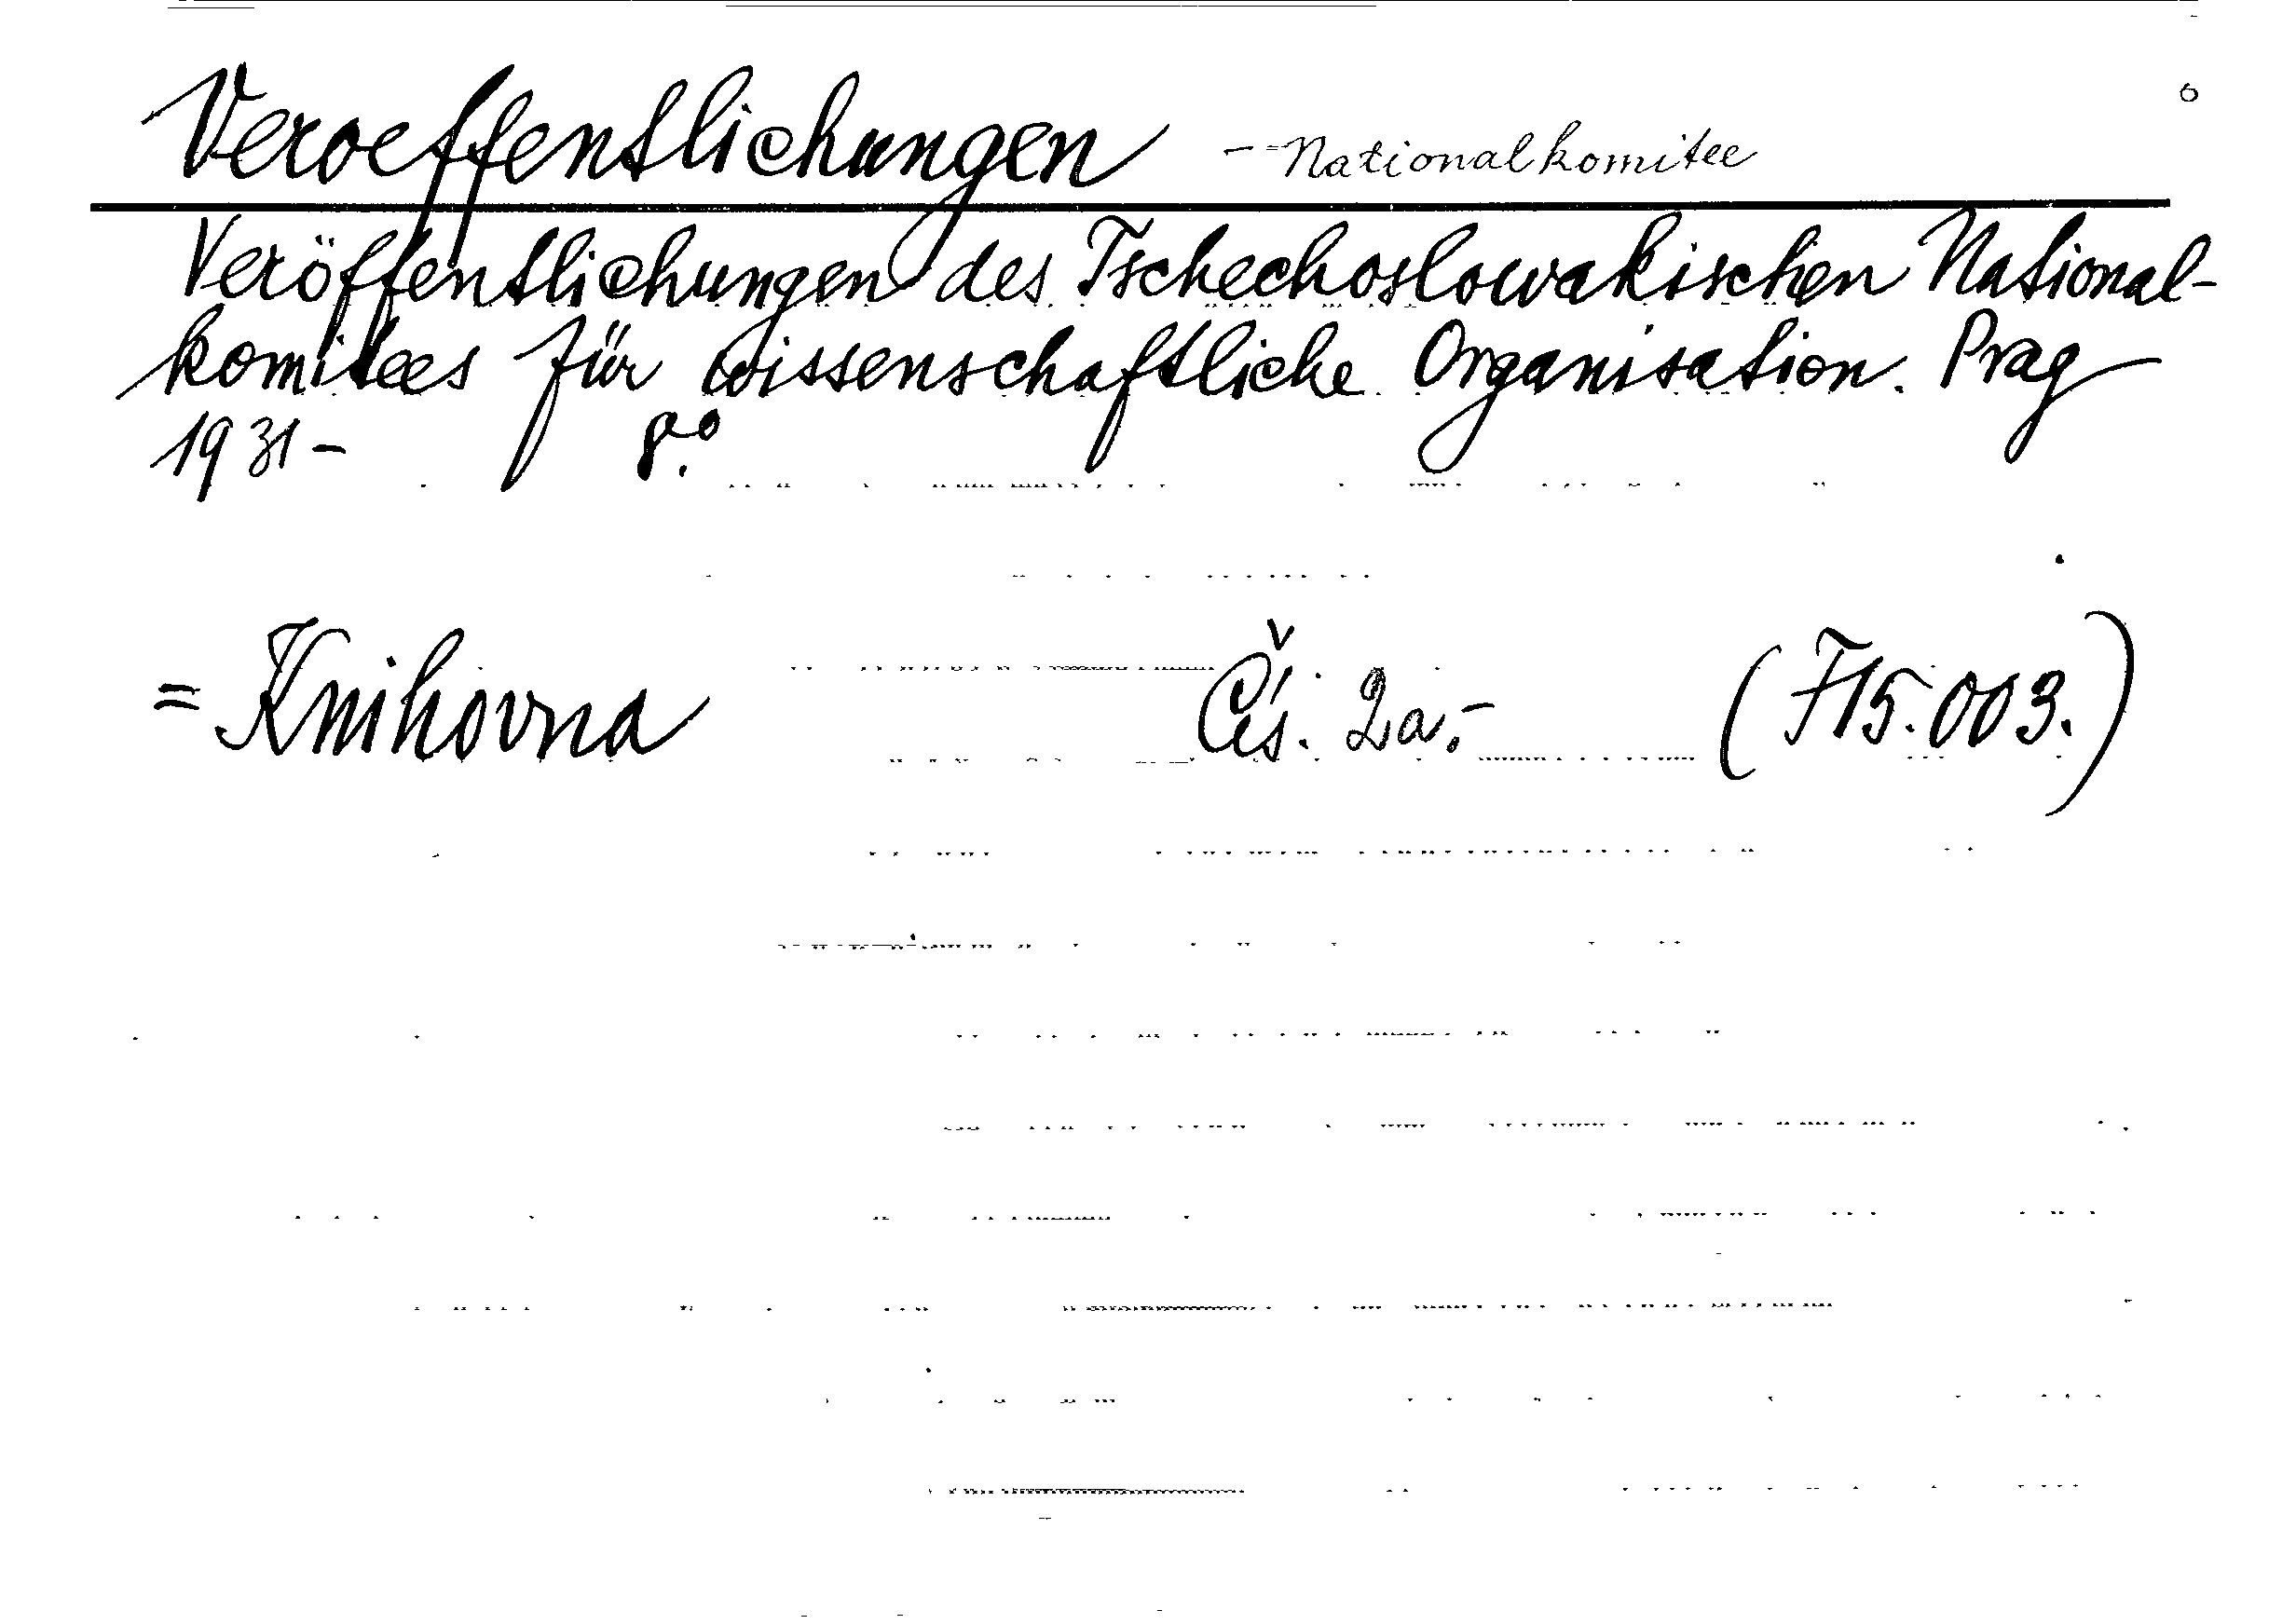 6
Veroeffentlichungen - = Nationalkomitee
Veröffentlichungen des Tschechoslowakischen National-
komitees für wissenschaftliche Organisation. Prag
1931 - 8.°
= Knihovna Čís. 2a.- (F15.003.)